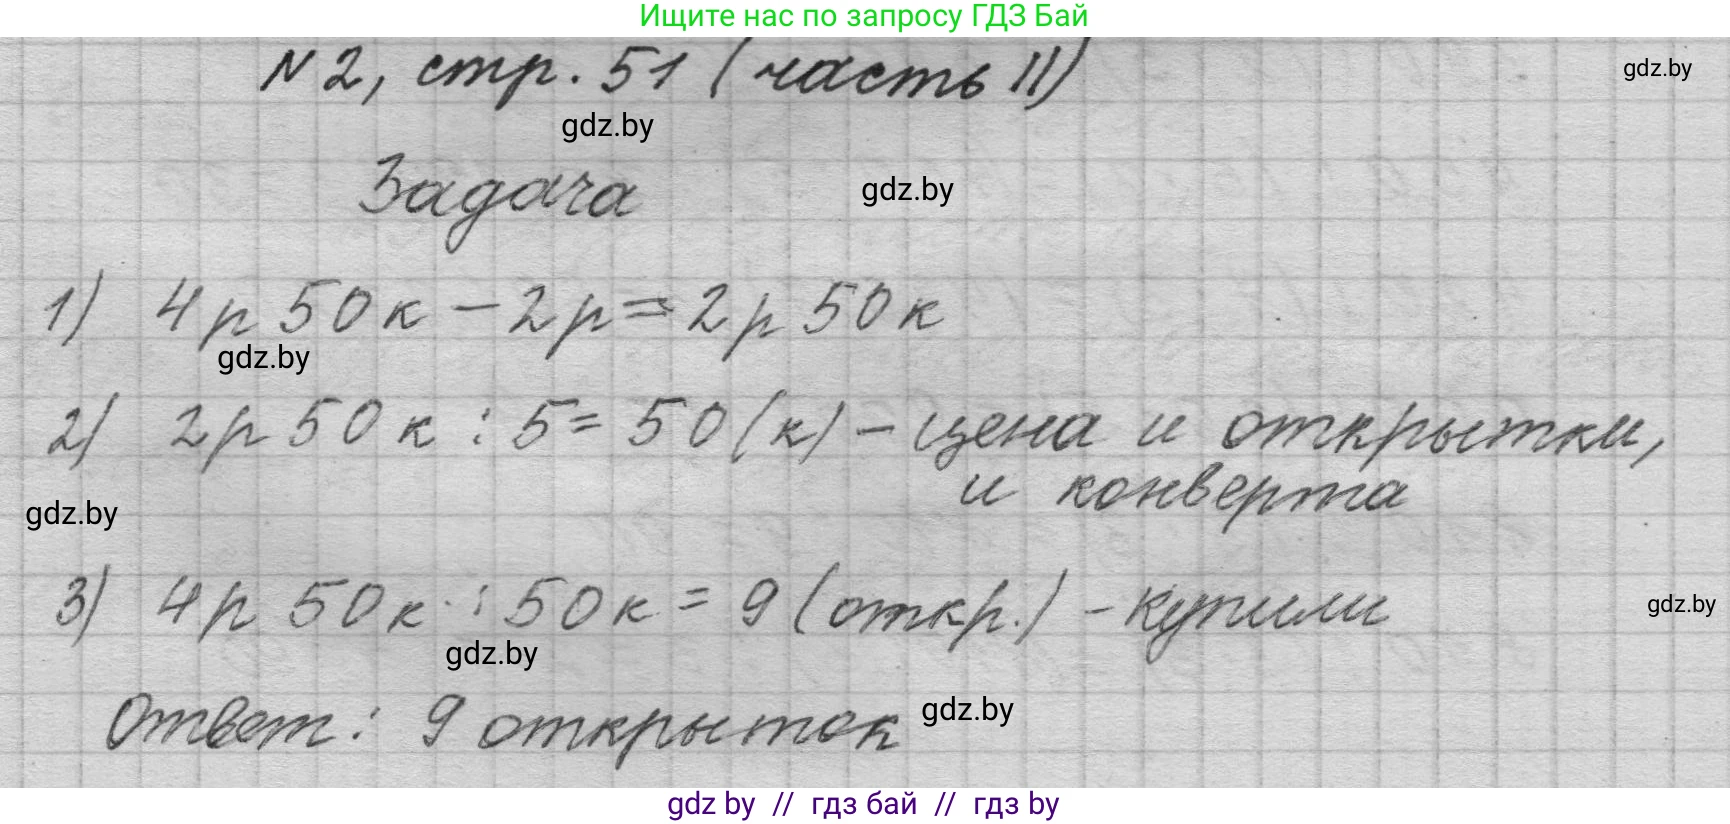 Ищите нас по запросу ГДЗ Бай
N 2, стр. 51 (часть II)
gdz.by
gdz.by
Задача
gdz.by
1) 4 р 50 к – 2 р = 2 р 50 к
gdz.by
2) 2 р 50 к : 5 = 50 (к) – цена и открытки,
и конверта
gdz.by
3) 4 р 50 к : 50 к = 9 (откр.) – купили
gdz.by
gdz.by
Ответ: 9 открыток
gdz.by
gdz by // гдз бай // гдз by